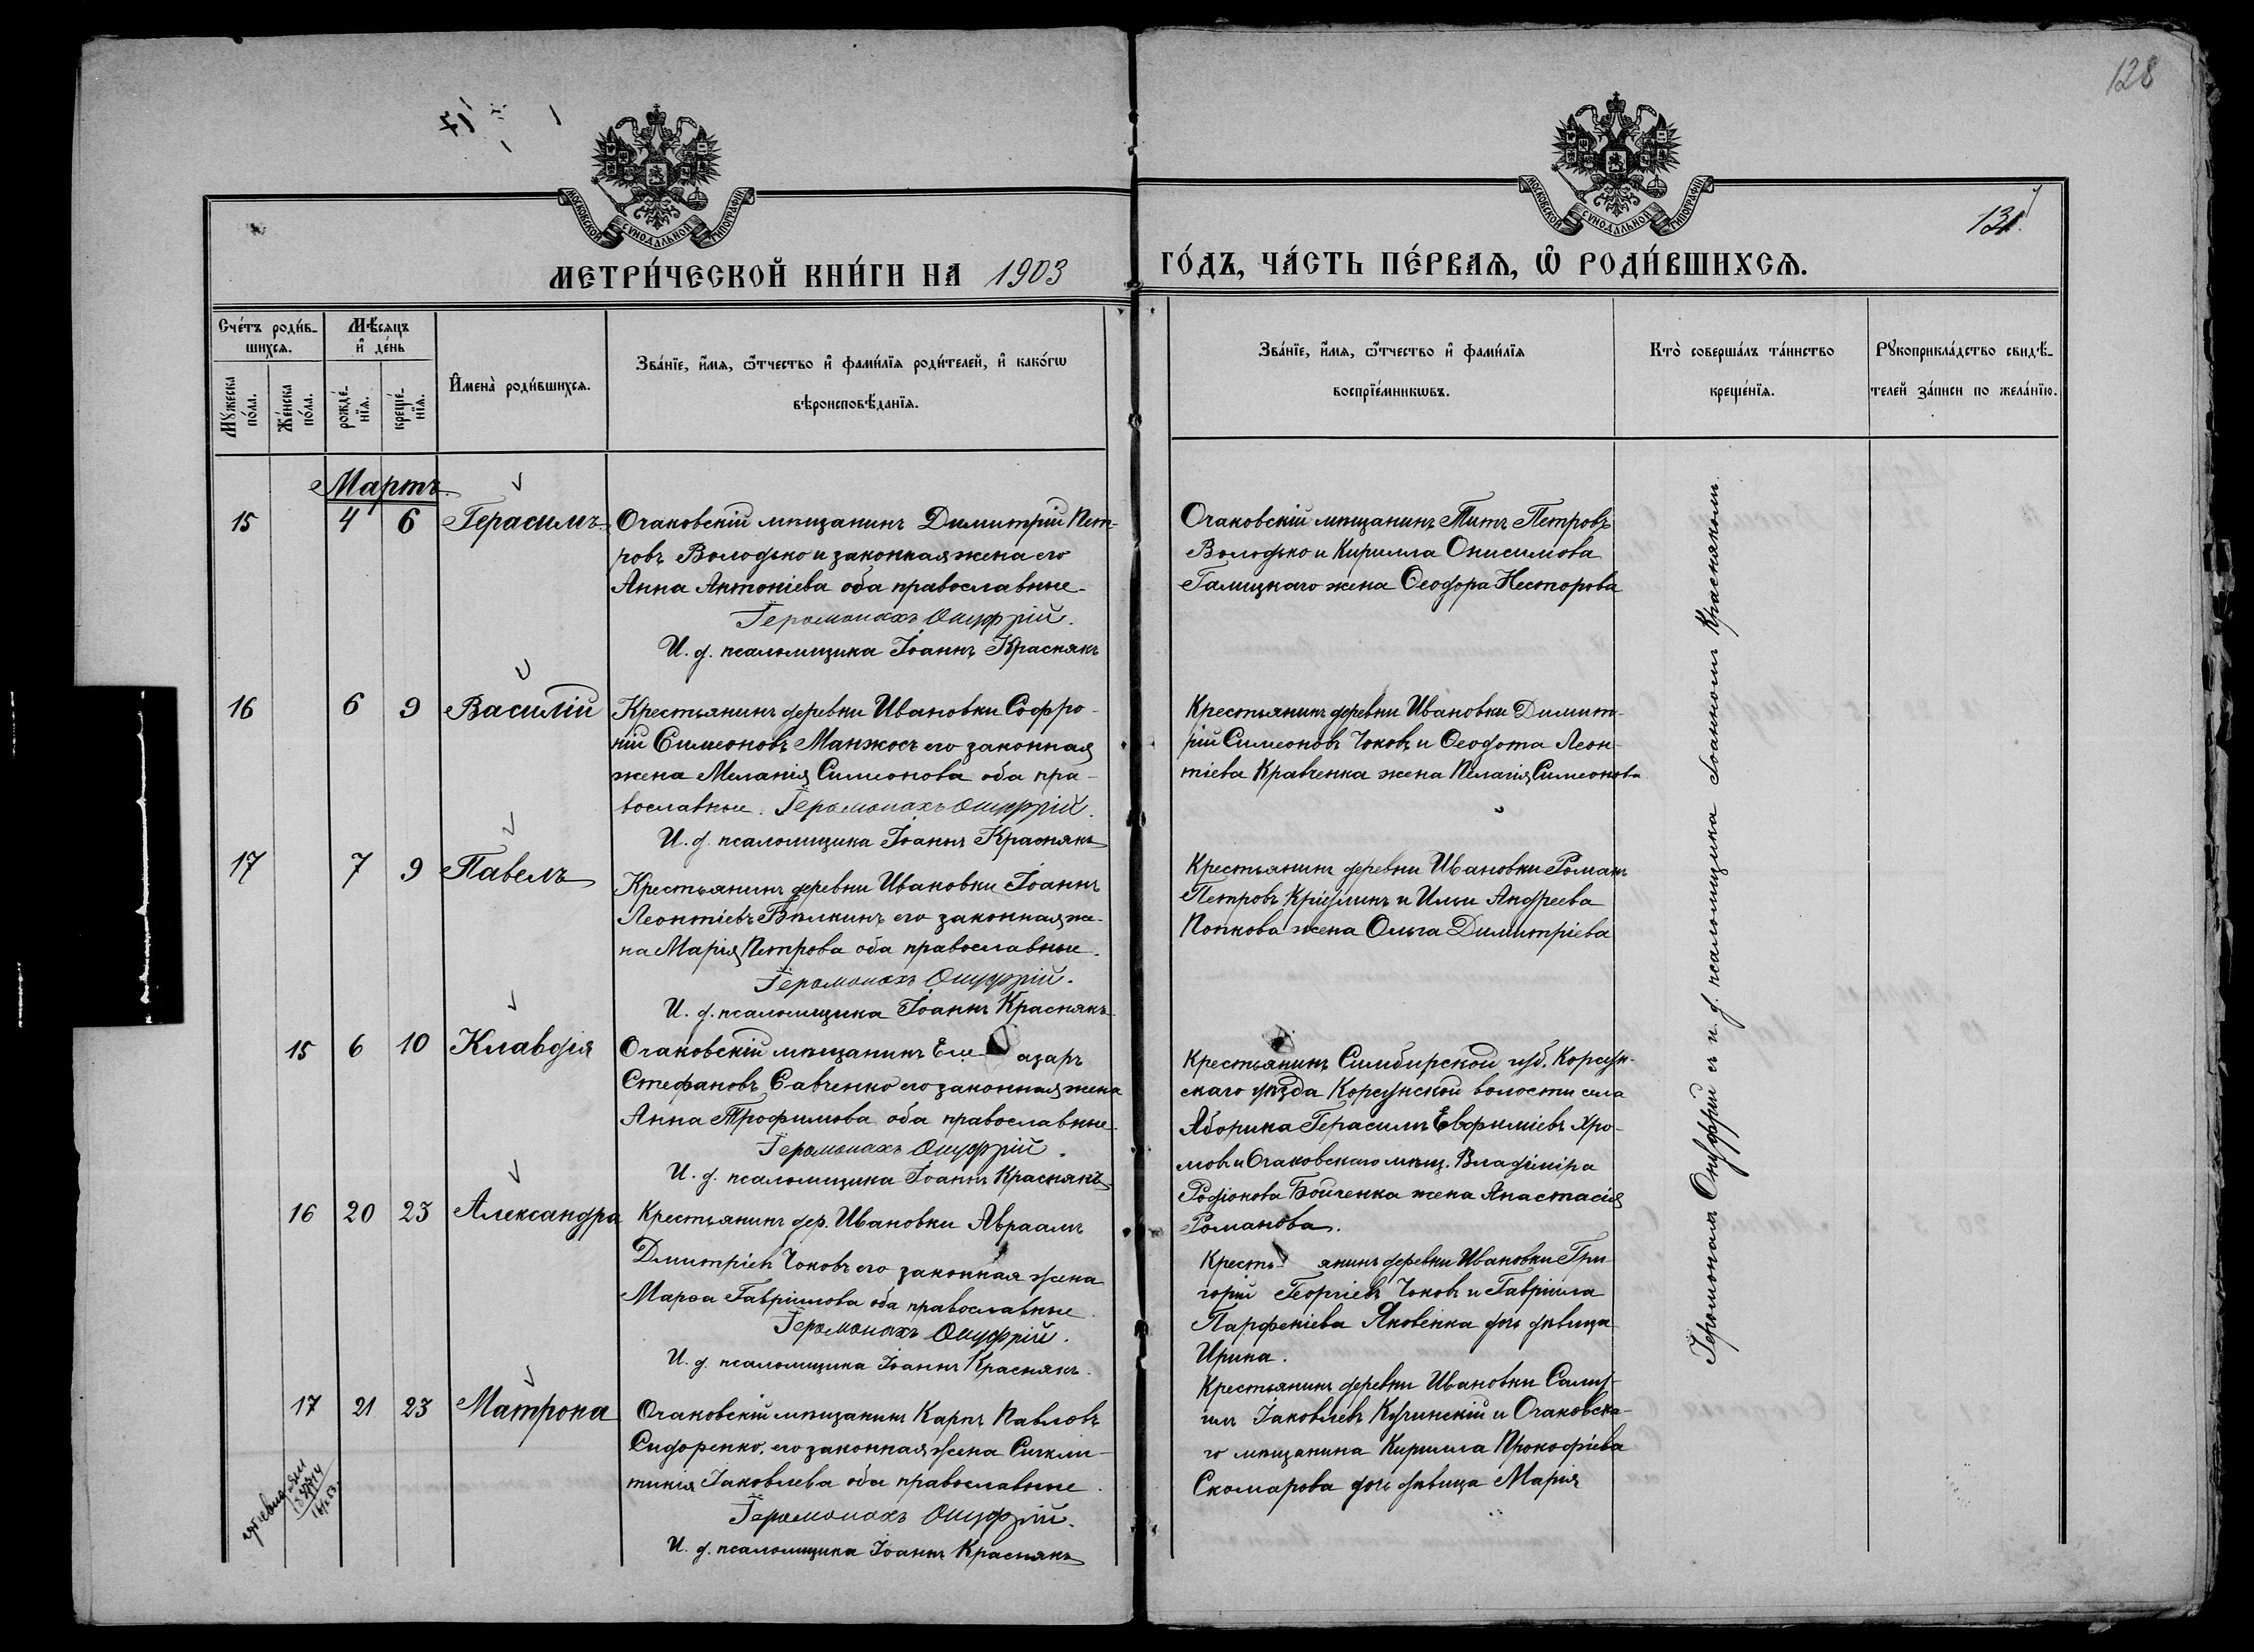 128
МОСКОВСКОЙ СУНОДАЛЬНОЙ ТИПОГРАФІИ
МОСКОВСКОЙ СУНОДАЛЬНОЙ ТИПОГРАФІИ
131
МЕТРИ́ЧЕСКОЙ КНИ́ГИ НА 1903
ГО́ДЪ, ЧА́СТЬ ПЕ́РВАѦ, Ѡ РОДИ́ВШИХСѦ.
Сче́тъ роди́в-
шихсѧ.
Мꙋжеска по́ла.
Же́нска по́ла.
Мѣ́сѧцъ
и҆ де́нь
рожде́-
нїѧ.
креще́-
нїѧ.
И҆мена̀ роди́вшихсѧ.
Зва́нїе, и҆́мѧ, ѻ҆́тчество и҆ фами́лїѧ роди́телей, и҆ како́гѡ
вѣроисповѣ́данїѧ.
Зва́нїе, и҆́мѧ, ѻ҆́тчество и҆ фами́лїѧ
воспрїе́мникѡвъ.
Кто̀ соверша́лъ та́инство
креще́нїѧ.
Рꙋкоприкла́дство свидѣ́-
телей за́писи по жела́нїю.
Мартъ
15 4 6 Герасимъ
Очаковскій мѣщанинъ Димитрій Пет-
ровъ Володько и законная жена его
Анна Антоніева оба православные
Іеромонахъ Онуфрій.
И. д. псаломщика Іоаннъ Краснякъ
Очаковскій мѣщанинъ Титъ Петровъ
Володько и Кирилла Онисимова
Галицкаго жена Ѳеодора Несторова
16 6 9 Василій
Крестьянинъ деревни Ивановки Софро-
ній Симеоновъ Манжосъ его законная
жена Меланія Симеонова оба пра-
вославные. Іеромонахъ Онуфрій.
И. д. псаломщика Іоаннъ Краснякъ
Крестьянинъ деревни Ивановки Димит-
рій Симеоновъ Чоковъ и Ѳеодота Леон-
тіева Кравченка жена Пелагія Симеонова
17 7 9 Павелъ
Крестьянинъ деревни Ивановки Іоаннъ
Леонтіевъ Бѣлкинъ его законная же-
на Марія Петрова оба православные.
Іеромонахъ Онуфрій.
И. д. псаломщика Іоаннъ Краснякъ.
Крестьянинъ деревни Ивановки Романъ
Петровъ Кріулинъ и Ильи Андреева
Попкова жена Ольга Димитріева
15 6 10 Клавдія
Очаковскій мѣщанинъ Еле азаръ
Стефановъ Савченко его законная жена
Анна Трофимова оба православные.
Іеромонахъ Онуфрій.
И. д. псаломщика Іоаннъ Краснякъ
Крестьянинъ Симбирской губ. Корсун-
скаго уѣзда Корсунской волости села
Яборика Герасимъ Евфиміевъ Хро-
мовъ и Очаковскаго мѣщ. Владиміра
Родіонова Бойченка жена Анастасія
Романова.
16 20 23 Александра
Крестьянинъ дер. Ивановки Авраамъ
Дмитріевъ Чоковъ его законная жена
Марѳа Гавріилова оба православные.
Іеромонахъ Онуфрій.
И. д. псаломщика Іоаннъ Краснякъ.
Кресть янинъ деревни Ивановки Гри
горій Георгіевъ Чоковъ и Гавріила
Парфеніева Яковенка дочь дѣвица
Ирина.
17 21 23 Матрона
Очаковскій мѣщанинъ Карпъ Павловъ
Сидоренко, его законная жена Синкли-
тикія Іаковлева оба православные.
Іеромонахъ Онуфрій.
И. д. псаломщика Іоаннъ Краснякъ
Крестьянинъ деревни Ивановки Саму-
илъ Іаковлевъ Кучинскій и Очаковска-
го мѣщанина Кирилла Прокофіева
Скомарова дочь дѣвица Марія
Іеромонахъ Онуфрій съ и. д. псаломщика Іоанномъ Краснякомъ.